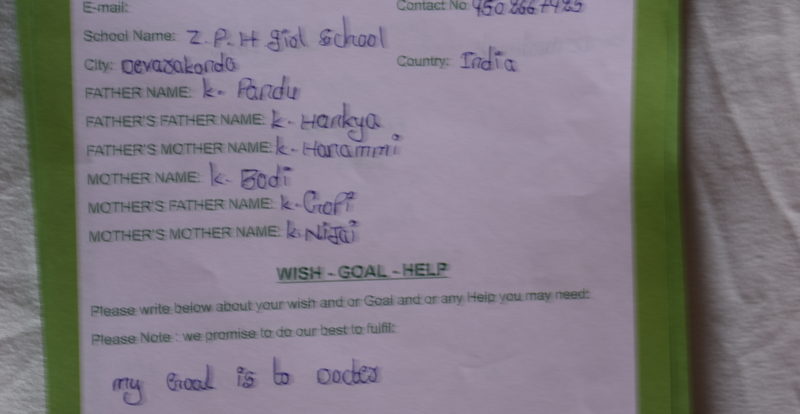 E-mail: Contact No 950 266 7485
School Name: Z.P.H giol school
City: Devarakonda Country: India
FATHER NAME: K. Pandu
FATHER'S FATHER NAME: K. Harkya
FATHER'S MOTHER NAME: K. Hanammi
MOTHER NAME: K. Bodi
MOTHER'S FATHER NAME: K. Gopi
MOTHER'S MOTHER NAME: K. Nijai
WISH - GOAL - HELP
Please write below about your wish and or Goal and or any Help you may need:
Please Note : we promise to do our best to fulfil:
my Goal is to Docter